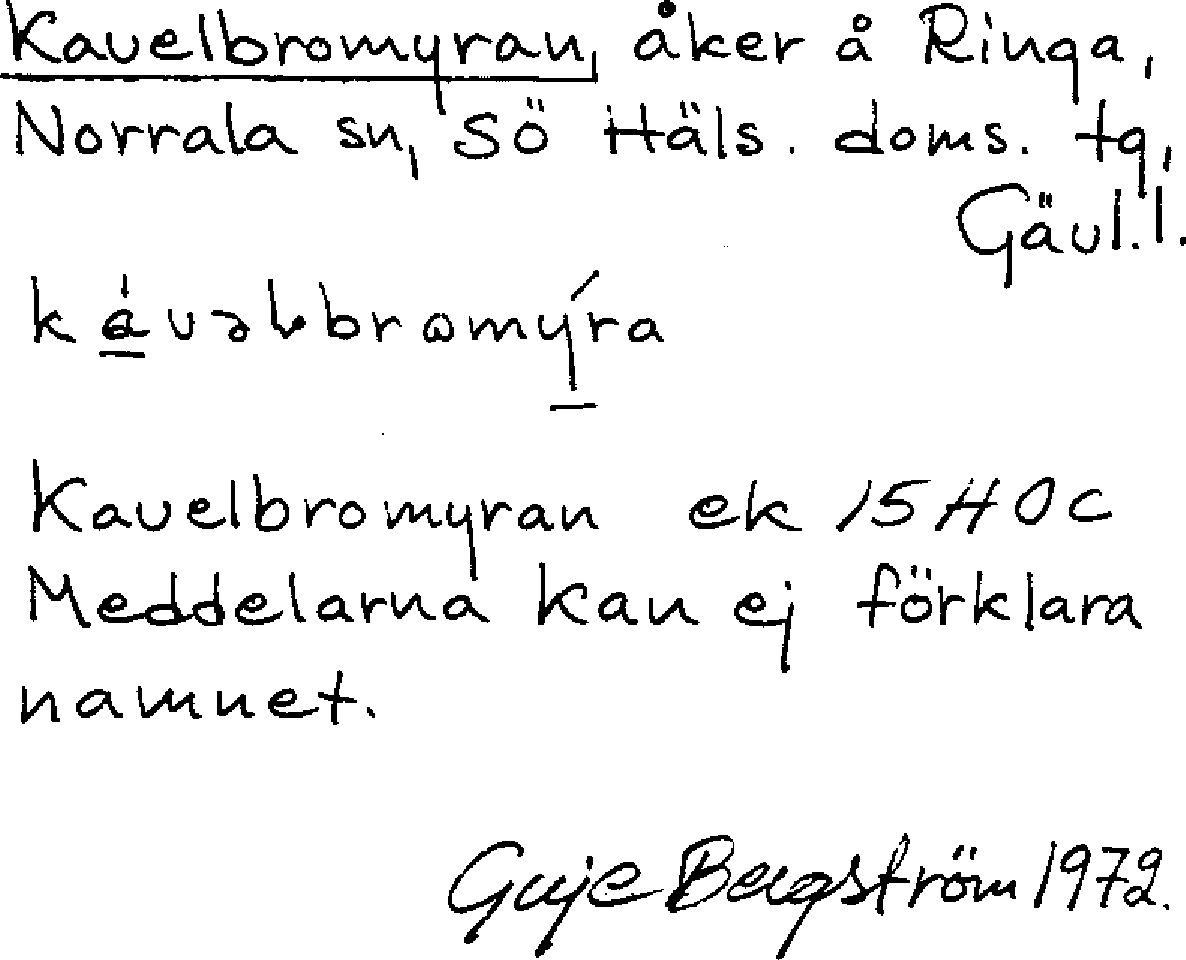 Kavelbromyran, åker å Ringa,
Norrala sn, Sö Häls. doms. tg,
Gävl.l.
kávəɫbromýra
Kavelbromyran ek 15H0c
Meddelarna kan ej förklara
namnet.
Guje Bergström 1972.